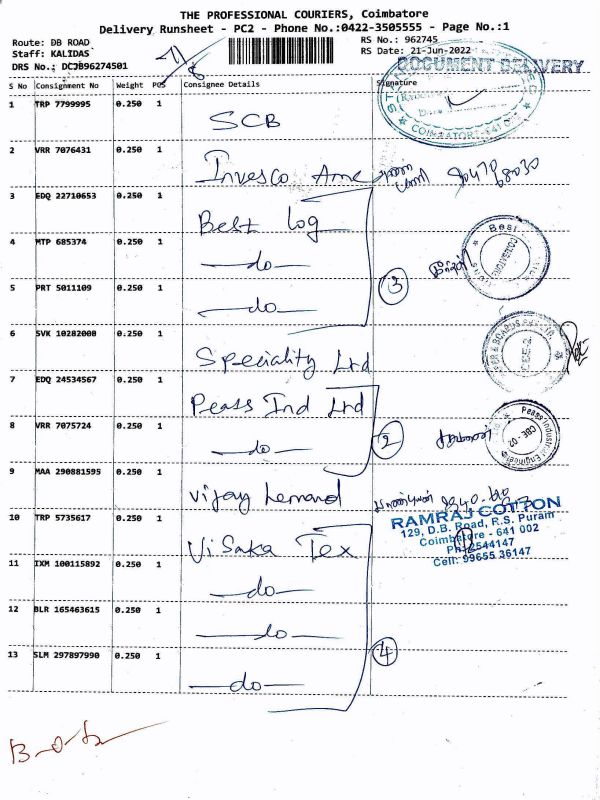 THE PROFESSIONAL COURIERS, Coimbatore
Delivery Runsheet - PC2 - Phone No.:0422-3505555 - Page No.:1
Route: DB ROAD
RS No.: 962745
Staff: KALIDAS
RS Date: 21-Jun-2022
DRS No.: DCJB96274501
DOCUMENT DELIVERY
S No Consignment No Weight PCS Consignee Details Signature
COIMBATORE-641 002
1 TRP 7799995 0.250 1 SCB
2 VRR 7076431 0.250 1 Invesco Ame
3 EDQ 22710653 0.250 1 Best Log
4 MTP 685374 0.250 1 —do—
5 PRT 5011109 0.250 1 —do—
3
6 SVK 10282000 0.250 1 Speciality Ltd
7 EDQ 24534567 0.250 1 Peass Ind Ltd
8 VRR 7075724 0.250 1 —do—
2
Peass Industrial Engineers
CBE - 02
9 MAA 290881595 0.250 1 Vijay
10 TRP 5735617 0.250 1 Visaka Tex
RAMRAJ COTTON
129, D.B. Road, R.S. Puram
Coimbatore - 641 002
Ph: 2544147
Cell: 99655 36147
11 IXM 100115892 0.250 1 —do—
12 BLR 165463615 0.250 1 —do—
13 SLM 297897990 0.250 1 —do—
4